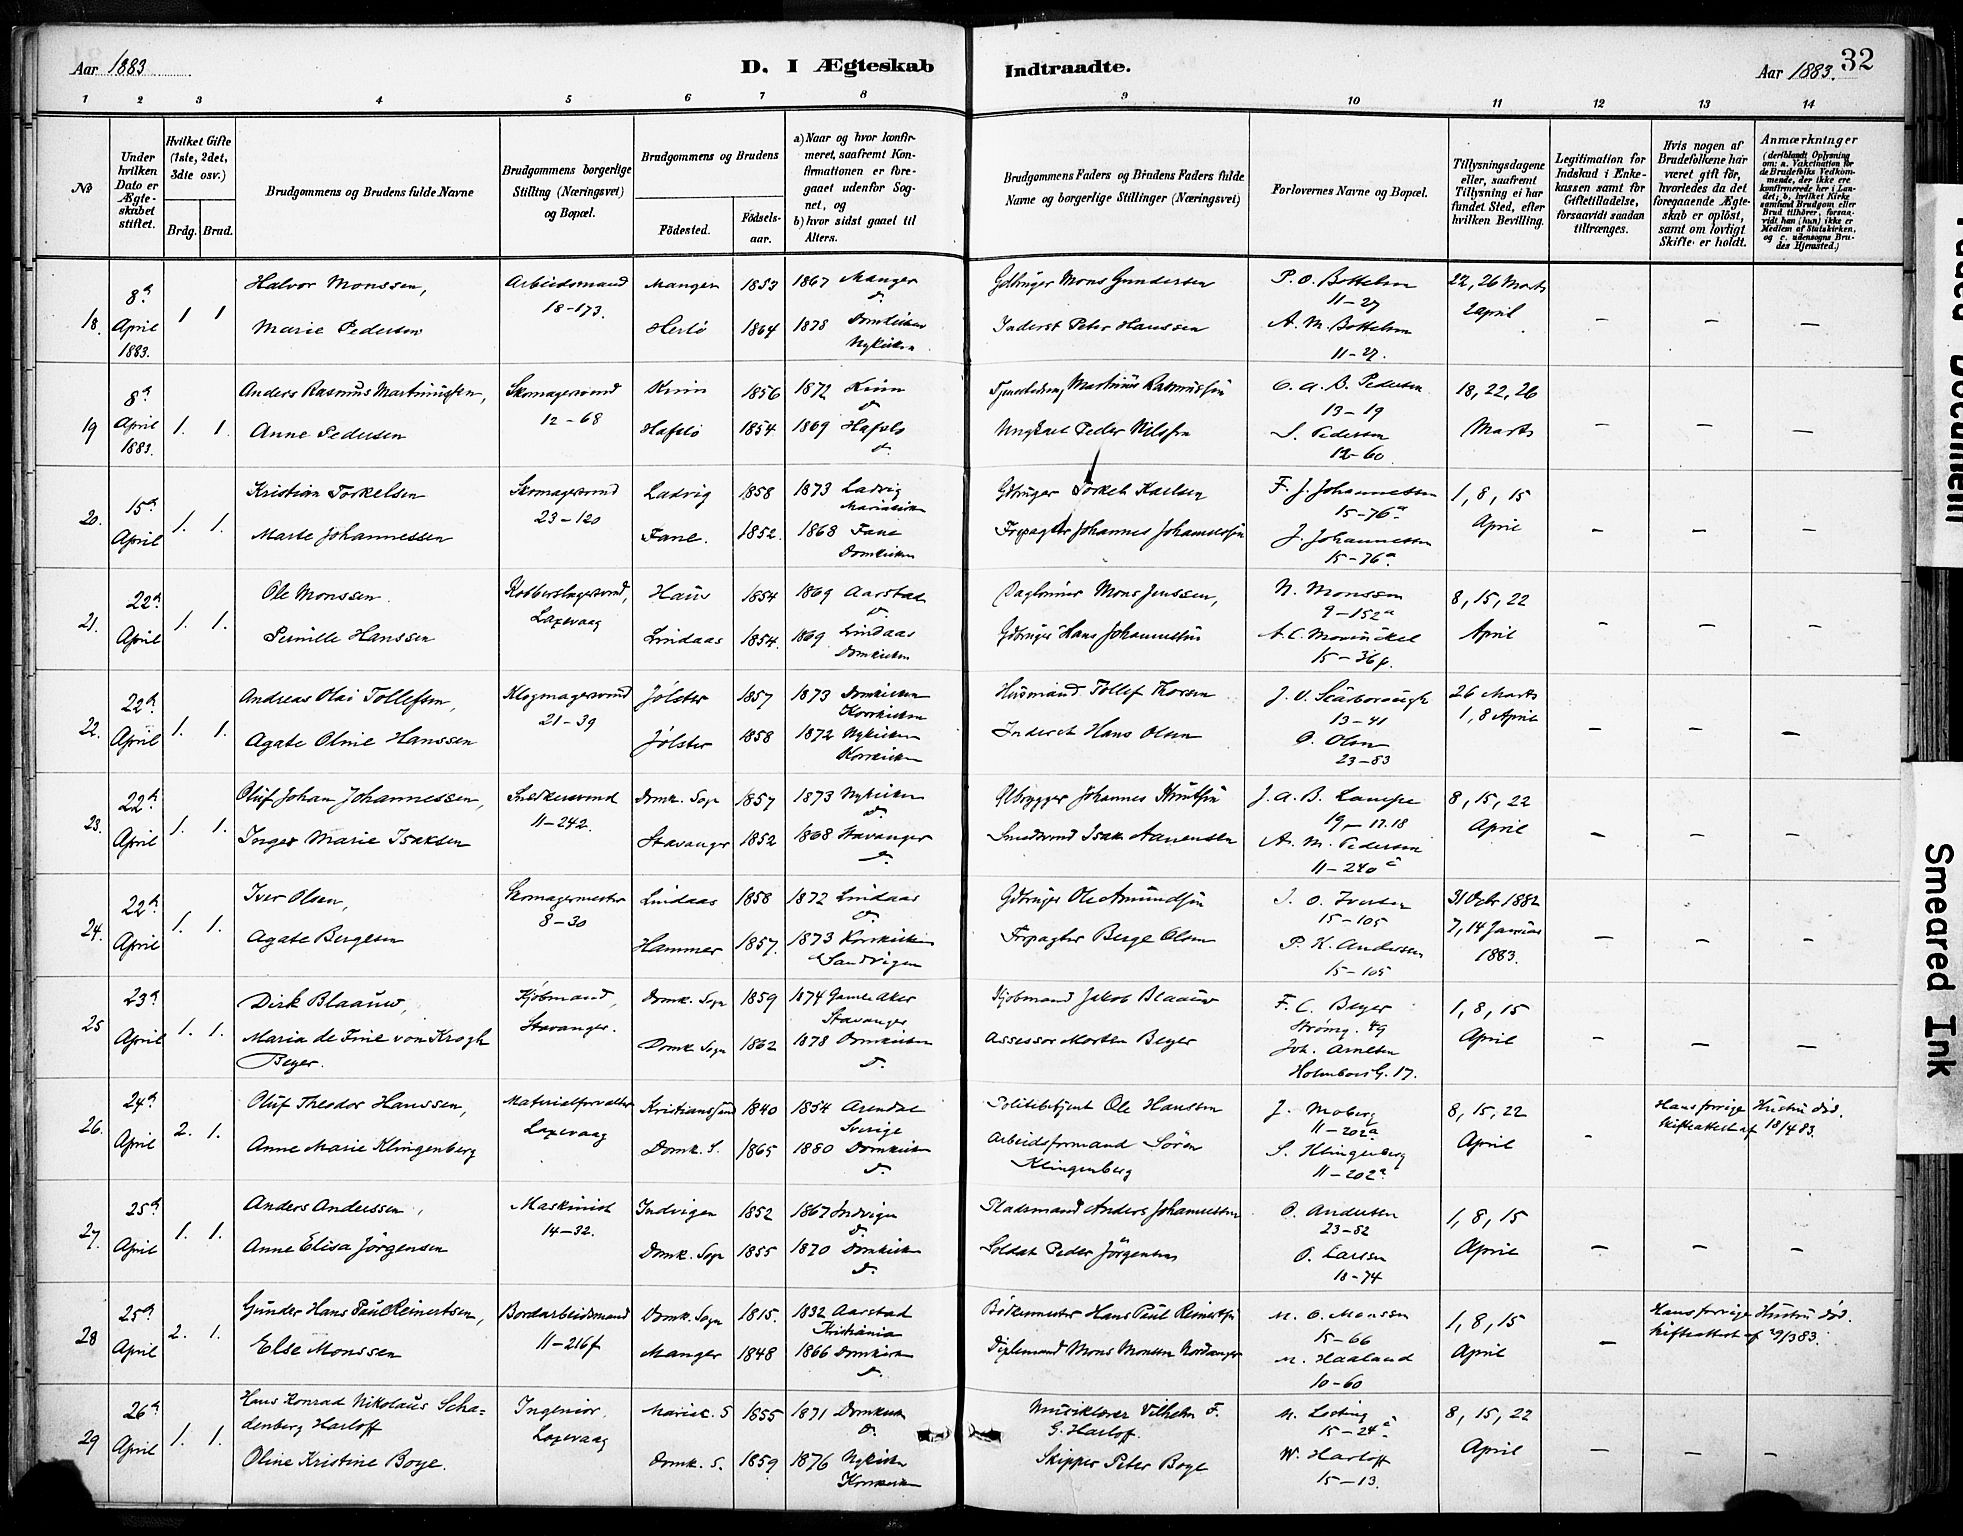 Aar 1883
D. I Ægteskab
Indtraadte.
Aar 1883.
32
1 2 3 4 5 6 7 8 9 10 11 12 13 14
No
Under hvilken Dato er Ægteskabet stiftet.
Hvilket Gifte (1ste, 2det, 3die osv.)
Brdg. Brud.
Brudgommens og Brudens fulde Navne
Brudgommens borgerlige Stilling (Næringsvei) og Bopæl.
Brudgommens og Brudens
Fødested.
Fødselsaar.
a) Naar og hvor konfirmeret, saafremt Konfirmationen er foregaaet udenfor Sognet, og
b) hvor sidst gaaet til Alters.
Brudgommens Faders og Brudens Faders fulde Navne og borgerlige Stillinger (Næringsvei)
Forlovernes Navne og Bopæl.
Tillysningsdagene eller, saafremt Tillysning ei har fundet Sted, efter hvilken Bevilling.
Legitimation for Indskud i Enkekassen samt for Giftetilladelse, forsaavidt saadan tiltrænges.
Hvis nogen af Brudefolkene har været gift før, hvorledes da det foregaaende Ægteskab er opløst, samt om lovligt Skifte er holdt.
Anmærkninger
(deriblandt Oplysning om: a. Vakcination for de Brudefolks Vedkommende, der ikke ere konfirmerede her i Landet; b. hvilket Kirkesamfund Brudgom eller Brud tilhører, forsaavidt han (hun) ikke er Medlem af Statskirken, og c. udensogns Brudes Hjemsted.)
18. 8de April 1883. 1 1
Halvor Monssen, Arbeidsmand 18-173. Manger 1853 1867 Manger d. Gbruger Mons Gundersen P. O. Bottelsen 11-27 22, 26 Marts 2 April
Marie Pedersen Herlø 1864 1878 Domkirken Nykirken Inderst Peter Hanssen A. M. Bottelsen 11-27. – – –
19 8de April 1883. 1. 1.
Anders Rasmus Martinussen, Skomagersvend 12-68 Kinn 1856 1872 Kinn d. Martinus Rasmussen C. A. B. Pedersen 13-19 18, 22, 26 Marts
Anne Pedersen Hafslo 1854 1869 Hafslo d. Ungkarl Peder Nilssen S. Pedersen 12-60 – – –
20. 15de April 1. 1.
Kristian Torkelsen Skomagersvend 23-120 Ladvig 1858 1873 Ladvig Mariakirken Gbruger Torkel Karlsen F. J. Johannessen 15-76a 1, 8, 15 April
Marte Johannessen Fane. 1852. 1868 Fane Domkirken Frpagter Johannes Johannessen J. Johannessen 15-76a – – –
21. 22de April 1. 1.
Ole Monssen Kobberslagersvend, Laxevaag Haus 1854 1869 Aarstad d. Daglønner Mons Jenssen, N. Monssen 9-152a 8, 15, 22 April
Pernille Hanssen Lindaas 1854. 1869 Lindaas Domkirken Gbruger Hans Johannessen A. C. Mowinckel 15-36f. – – –
22. 22de April 1. 1.
Andreas Olai Tollefsen, 21-39 Jølster 1857 1873 Domkirken Korskirken Husmand Tollef Thorsen J. V. Scarborough 13-41 26 Marts 1, 8 April
Agate Oline Hanssen Jølster 1858 1872 Nykirken Korskirken Inderst Hans Olsen O. Olsen 23-83 – – –
23. 22de April 1. 1.
Oluf Johan Johannessen, Snedkersvend 11-242. Domk. Sogn 1857 1873 Nykirken d. Ølbrygger Johannes Knutsen J. A. B. Lampe 19-17.18 8, 15, 22 April
Inger Marie Isaksen Stavanger 1852 1868 Stavanger d. Smedsvend Isak Aanensen A. M. Pedersen 11-240a – – –
24. 22de April 1. 1.
Iver Olsen, Skomagermester 8-30 Lindaas 1858 1872 Lindaas d. Gbruger Ole Amundsen I. O. Iversen 15-105 31 Octbr 1882 7, 14 Januar 1883.
Agate Bergesen Hammer 1857. 1873 Korskirken Sandvigen Frpagter Berge Olsen P. K. Andersen 15-105 – – –
25 23de April 1. 1.
Dirk Blaauw, Kjøbmand, Stavanger. Domk. Sogn 1859 1874 Gamle Aker Stavanger Kjøbmand Jakob Blaauw F. C. Beyer Strømg. 49 1, 8, 15 April
Maria de Fine von Krogh Beyer. Domk. Sogn 1862 1878 Domkirken d. Assessor Morten Beyer Joh. Arnesen Holmboes G. 17. – – –
26. 24de April 2. 1.
Oluf Theodor Hanssen, Materialforvalter Laxevaag Kristianssund 1840 1854 Arendal Sverige Politibetjent Ole Hanssen J. Moberg 11-202a 8, 15, 22 April Hans forrige Hustru død. Skifteattest af 18/4 83.
Anne Marie Klingenberg Domk. S. 1865 1880 Domkirken d. Arbeidsformand Søren Klingenberg S. Klingenberg 11-202a –
27. 25de April 1. 1.
Anders Anderssen, Maskinist 14-32. Indvigen 1852 1867 Indvigen d. Pladsmand Anders Johannessen O. Andersen 23-82 1, 8, 15 April
Anne Elisa Jørgensen Domk. Sogn 1855 1870 Domkirken d. Soldat Peder Jørgensen O. Larsen 18-74 – – –
28 25de April 2. 1.
Gunder Hans Paul Reinertsen, Bordarbeidsmand 11-216f Domk. Sogn 1815. 1832 Aarstad Kristiania Bøkermester Hans Paul Reinertsen M. O. Monssen 15-66 1, 8, 15 April Hans forrige Hustru død. Skifteattest af 29/3 83.
Else Monssen Manger 1848 1866 Domkirken d. Mons Monsen Nordanger M. Haaland 10-60 –
29 26de April 1. 1.
Hans Konrad Nikolaus Schadenberg Harloff Ingeniør, Laxevaag Mariek. S 1855 1871 Domkirken d. Musiklærer Vilhelm F. G. Harlof. M. Leding 15-24a 8, 15, 22 April
Oline Kristine Boye. Domk. S. 1859 1876 Nykirken Korskirken Skipper Peter Boye W. Harloff 15-13. – – –
Faded Document
Smeared Ink